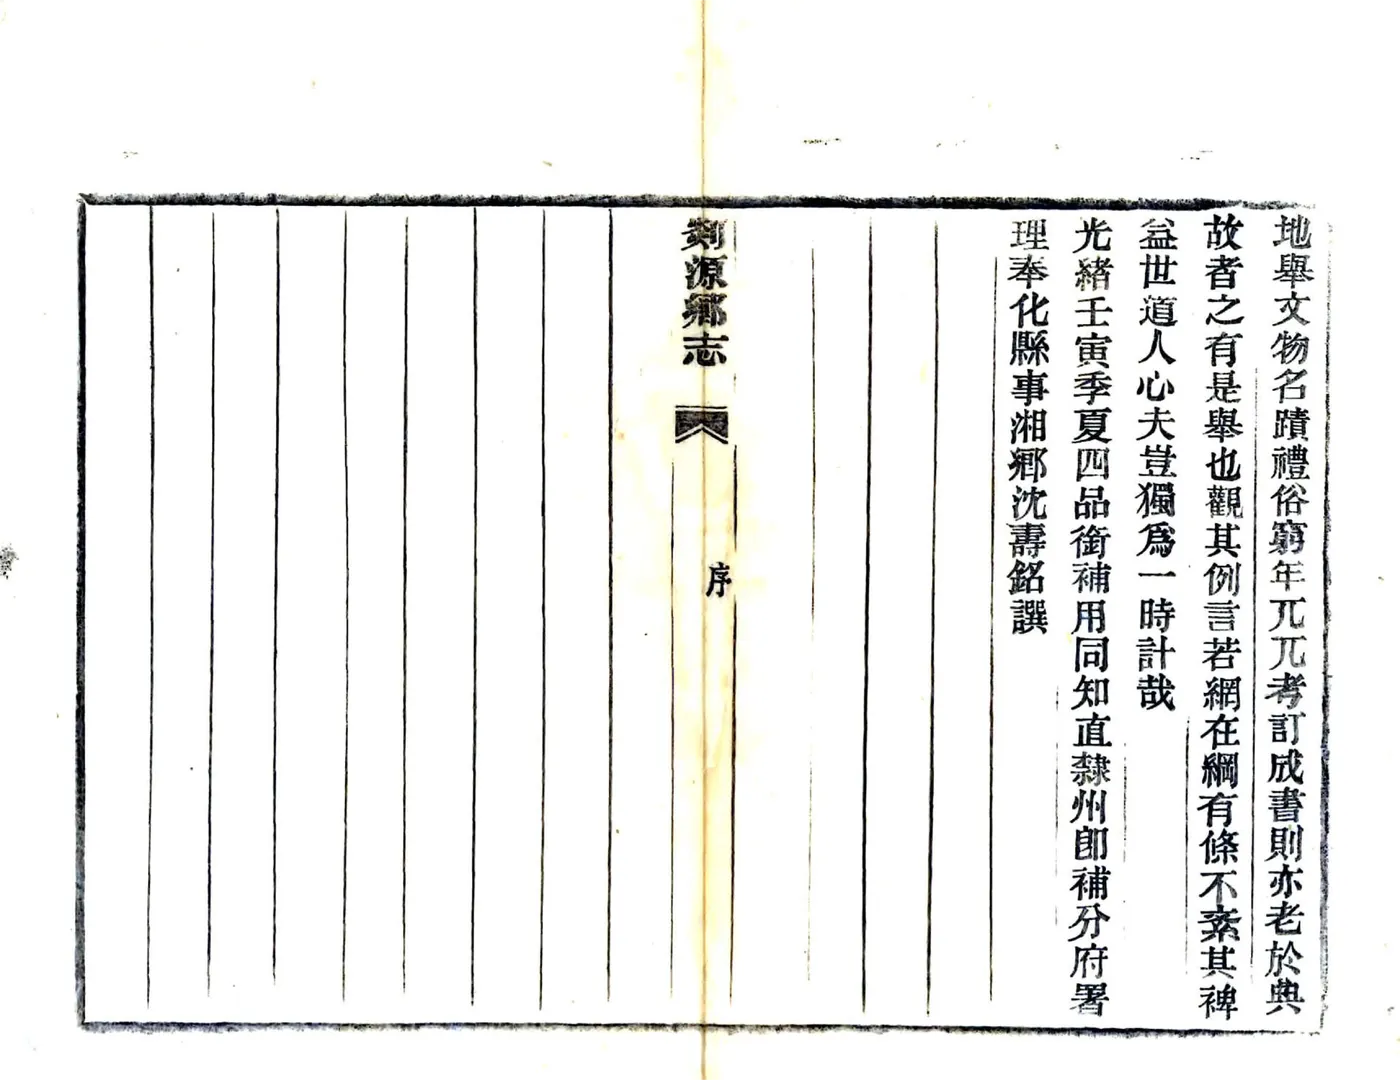 地舉文物名蹟禮俗窮年兀兀考訂成書則亦老於典
故者之有是舉也觀其例言若網在綱有條不紊其裨
益世道人心夫豈獨爲一時計哉
光緒壬寅季夏四品銜補用同知直隸州卽補分府署
理奉化縣事湘鄉沈壽銘譔
剡源鄉志
序